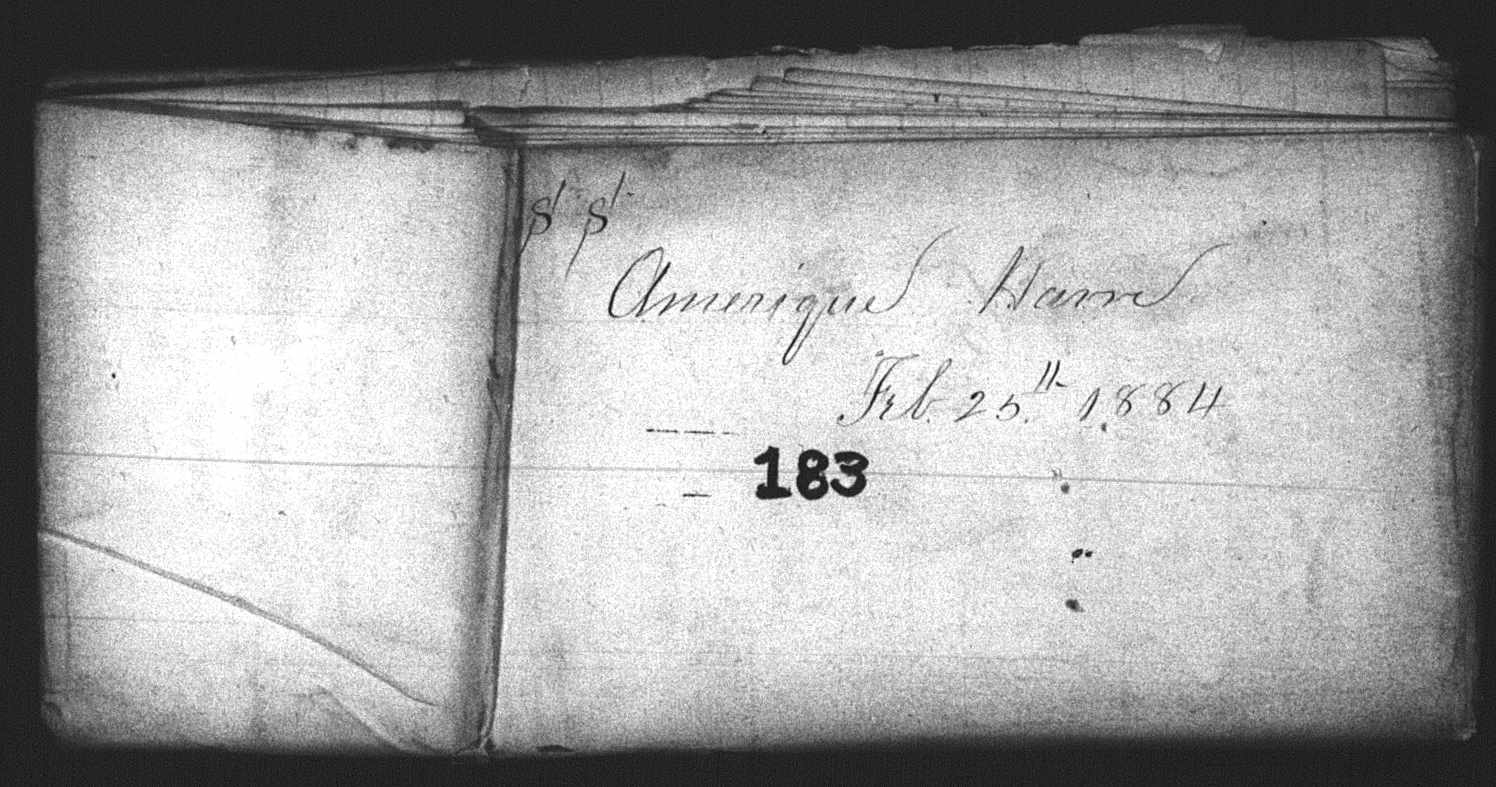 SS SS
Amerique Havre
Feb. 25th 1884
183